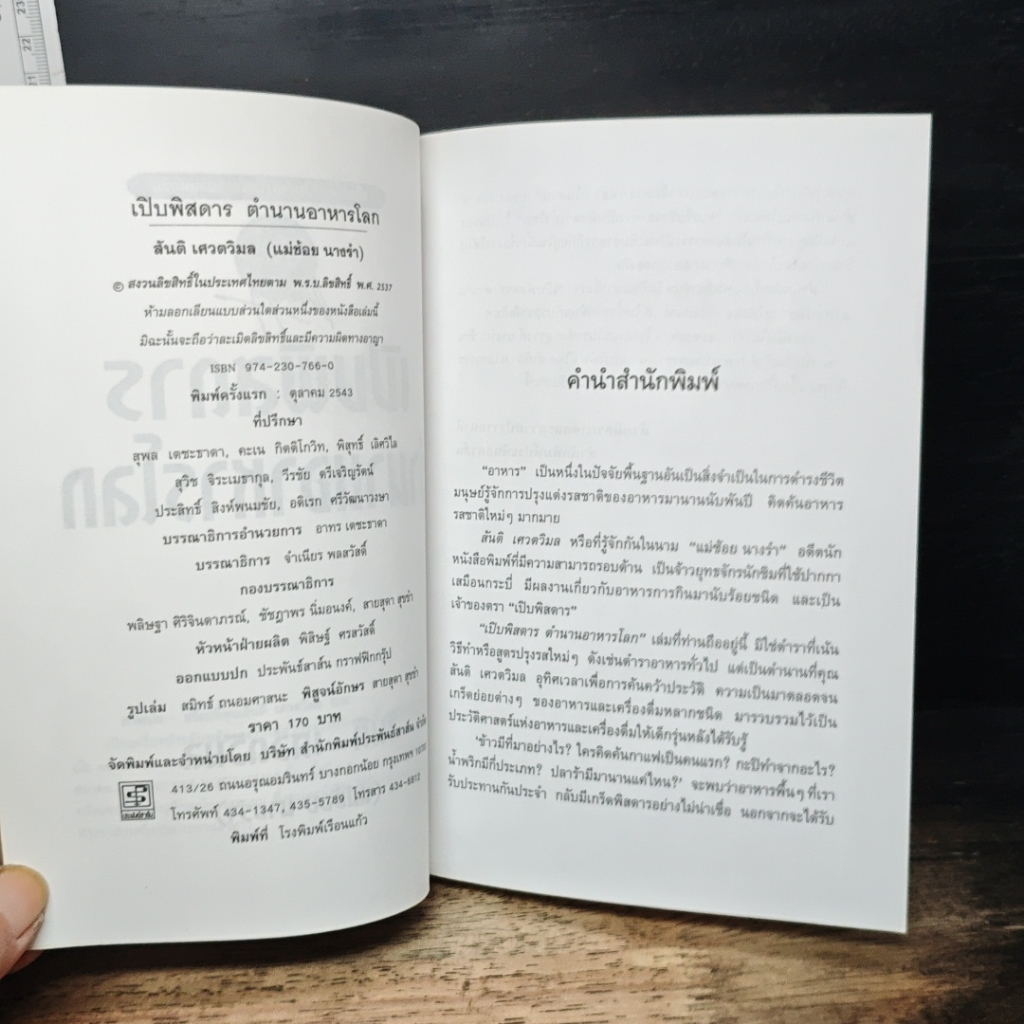 23
22
21
เปิบพิสดาร ตำนานอาหารโลก
สันติ เศวตวิมล (แม่ช้อย นางรำ)
© สงวนลิขสิทธิ์ในประเทศไทยตาม พ.ร.บ.ลิขสิทธิ์ พ.ศ. 2537
ห้ามลอกเลียนแบบส่วนใดส่วนหนึ่งของหนังสือเล่มนี้
มิฉะนั้นจะถือว่าละเมิดลิขสิทธิ์และมีความผิดทางอาญา
ISBN 974-230-766-0
พิมพ์ครั้งแรก : ตุลาคม 2543
ที่ปรึกษา
สุพล เตชะธาดา, คะเน กิตติโกวิท, พิสุทธิ์ เลิศวิไล
สุวิช จิระเมธากุล, วีรชัย ตรีเจริญรัตน์
ประสิทธิ์ สิงห์พนมชัย, อดิเรก ศรีวัฒนาวงษา
บรรณาธิการอำนวยการ อาทร เตชะธาดา
บรรณาธิการ จำเนียร พลสวัสดิ์
กองบรรณาธิการ
พลิษฐา ศิริจินดาภรณ์, ชัชฎาพร นิ่มอนงค์, สายสุดา สุขรำ
หัวหน้าฝ่ายผลิต พิสิษฐ์ ศรสวัสดิ์
ออกแบบปก ประพันธ์สาส์น กราฟฟิกกรุ๊ป
รูปเล่ม สมิทธิ์ ถนอมศาสนะ พิสูจน์อักษร สายสุดา สุขรำ
ราคา 170 บาท
จัดพิมพ์และจำหน่ายโดย บริษัท สำนักพิมพ์ประพันธ์สาส์น จำกัด
413/26 ถนนอรุณอมรินทร์ บางกอกน้อย กรุงเทพฯ 10700
โทรศัพท์ 434-1347, 435-5789 โทรสาร 434-6812
พิมพ์ที่ โรงพิมพ์เรือนแก้ว
คำนำสำนักพิมพ์
"อาหาร" เป็นหนึ่งในปัจจัยพื้นฐานอันเป็นสิ่งจำเป็นในการดำรงชีวิต
มนุษย์รู้จักการปรุงแต่งรสชาติของอาหารมานานนับพันปี คิดค้นอาหาร
รสชาติใหม่ๆ มากมาย
สันติ เศวตวิมล หรือที่รู้จักกันในนาม "แม่ช้อย นางรำ" อดีตนัก
หนังสือพิมพ์ที่มีความสามารถรอบด้าน เป็นจ้าวยุทธจักรนักชิมที่ใช้ปากกา
เสมือนกระบี่ มีผลงานเกี่ยวกับอาหารการกินมานับร้อยชนิด และเป็น
เจ้าของตรา "เปิบพิสดาร"
"เปิบพิสดาร ตำนานอาหารโลก" เล่มที่ท่านถืออยู่นี้ มิใช่ตำราที่เน้น
วิธีทำหรือสูตรปรุงรสใหม่ๆ ดังเช่นตำราอาหารทั่วไป แต่เป็นตำนานที่คุณ
สันติ เศวตวิมล อุทิศเวลาเพื่อการค้นคว้าประวัติ ความเป็นมาตลอดจน
เกร็ดย่อยต่างๆ ของอาหารและเครื่องดื่มหลากชนิด มารวบรวมไว้เป็น
ประวัติศาสตร์แห่งอาหารและเครื่องดื่มให้เด็กรุ่นหลังได้รับรู้
'ข้าวมีที่มาอย่างไร? ใครคิดค้นกาแฟเป็นคนแรก? กะปิทำจากอะไร?
น้ำพริกมีกี่ประเภท? ปลาร้ามีมานานแค่ไหน?' จะพบว่าอาหารพื้นๆ ที่เรา
รับประทานกันประจำ กลับมีเกร็ดพิสดารอย่างไม่น่าเชื่อ นอกจากจะได้รับ